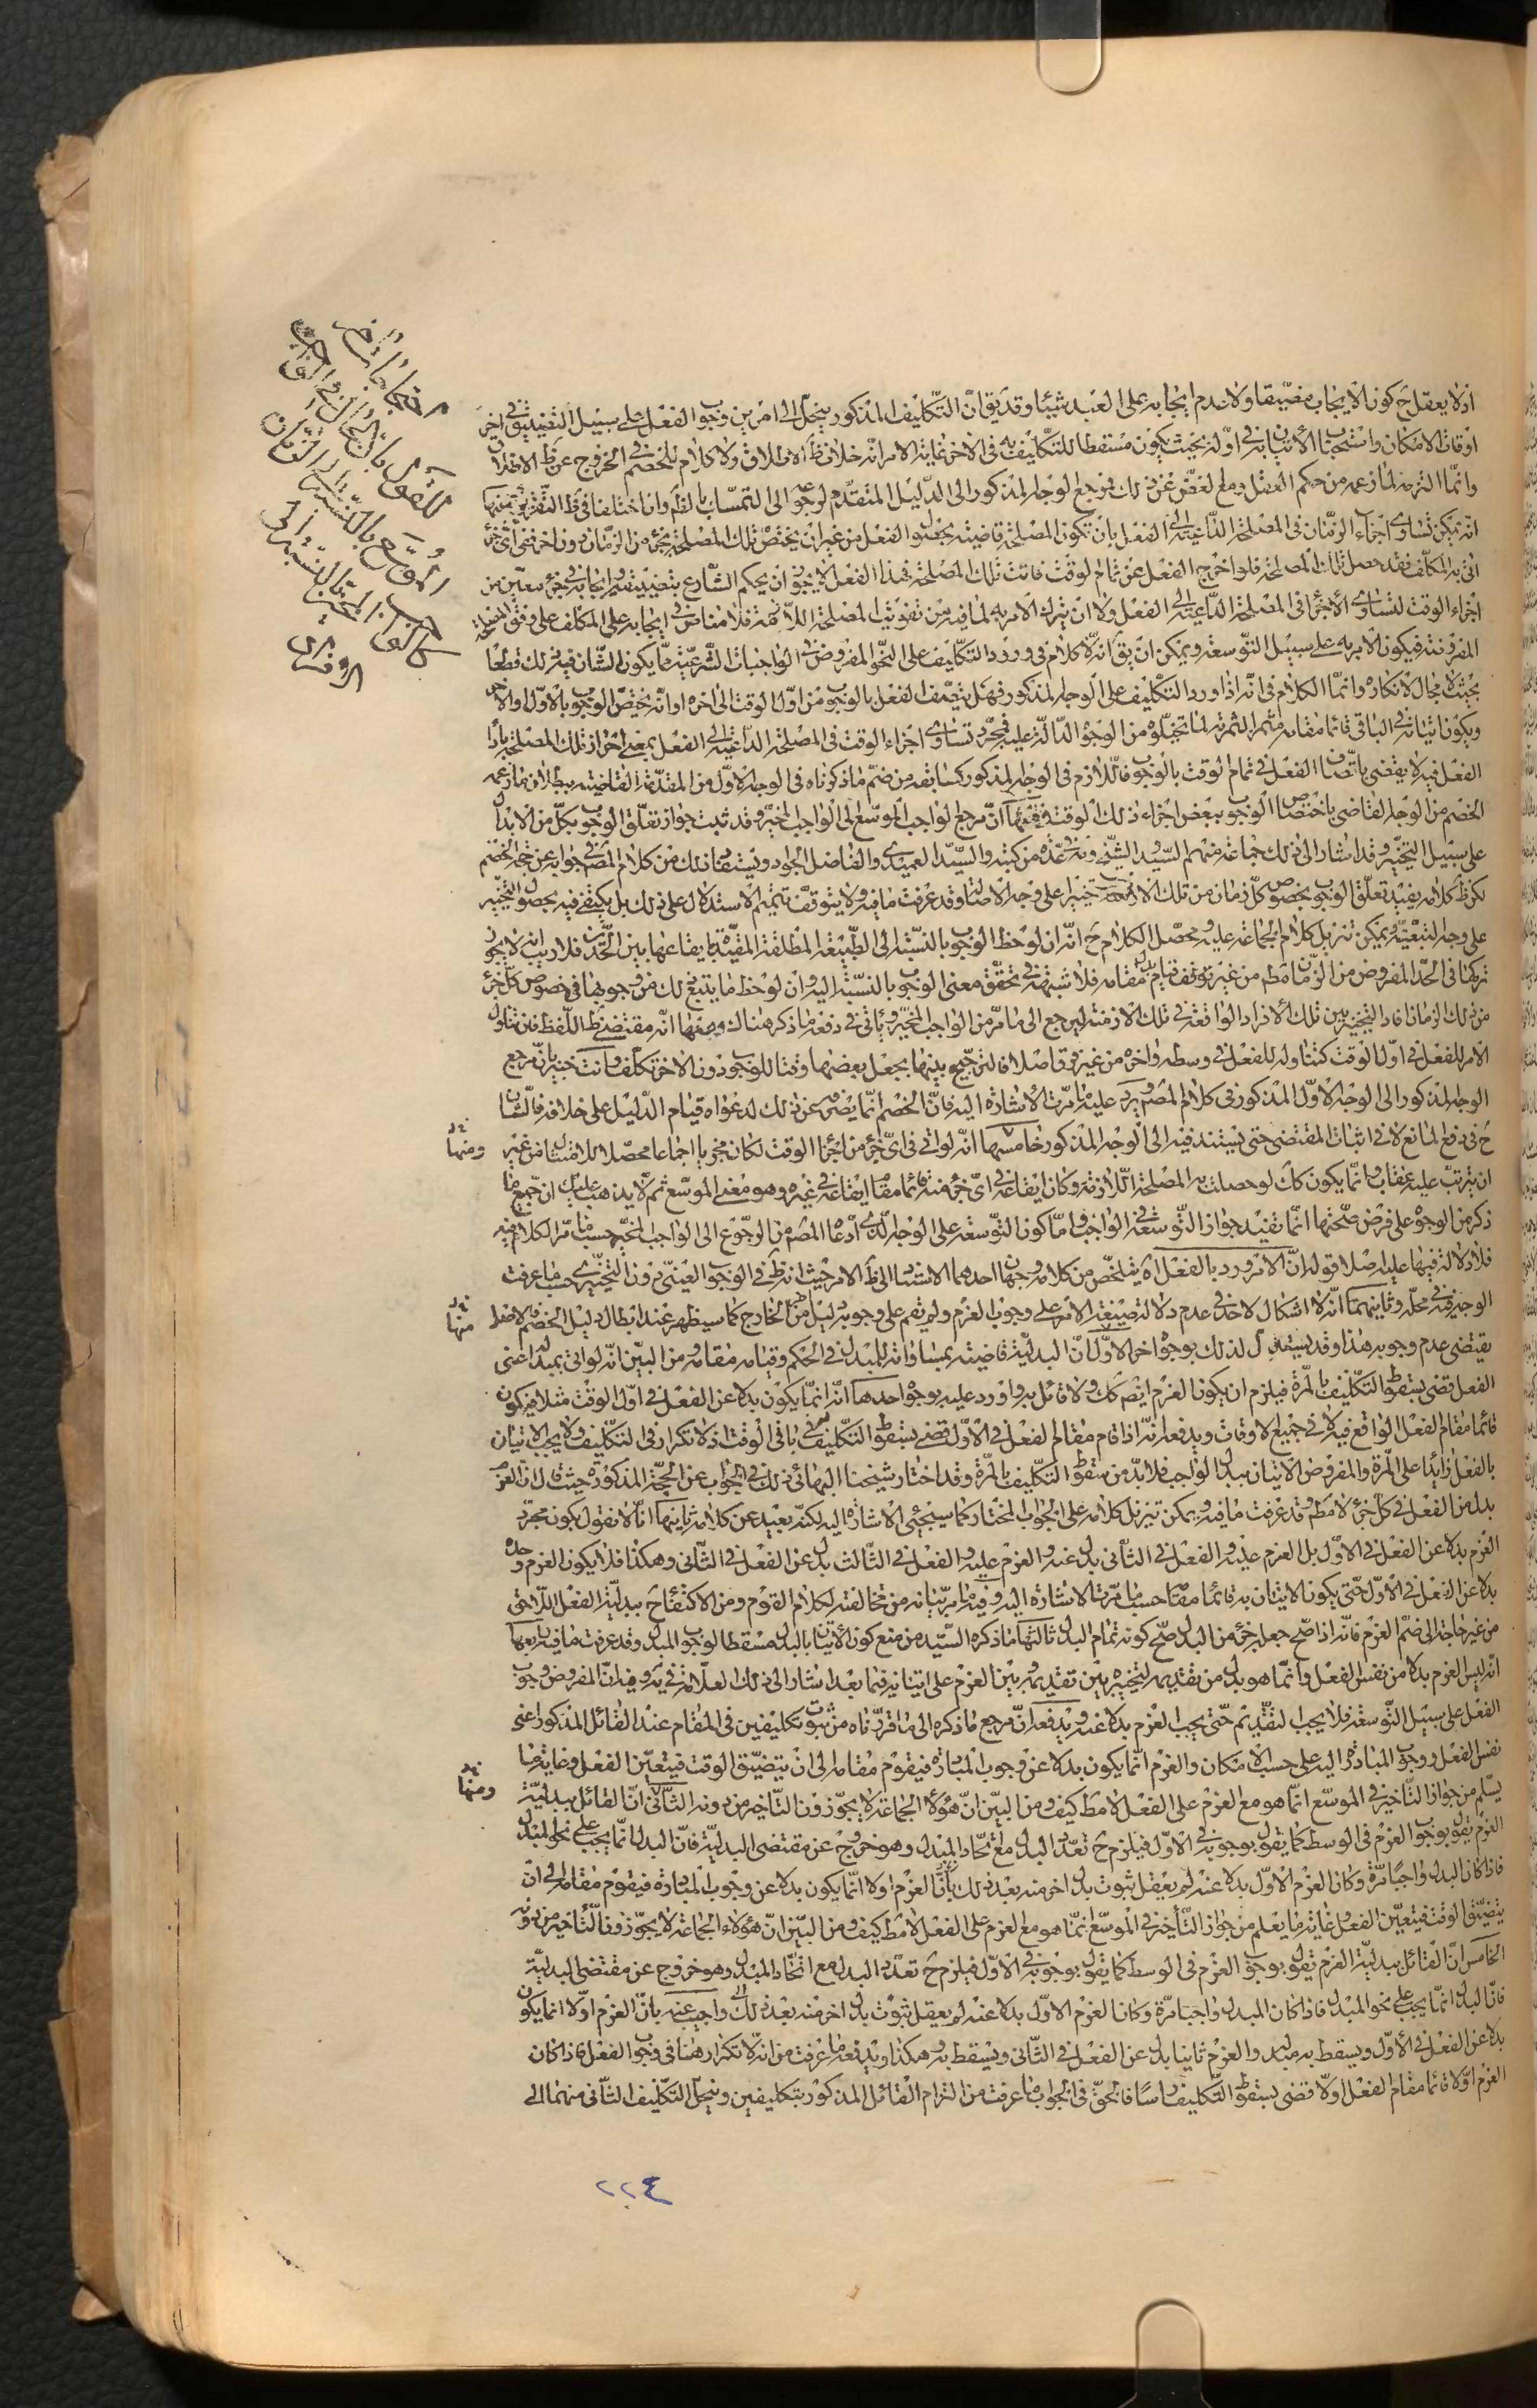 اذ لا يعقل ح كون الايجاب مضيقا ولا عدم ايجابه على العبد شيئا وقد يقال ان التكليف المذكور ينحل الى امرين وجوب الفعل على سبيل التضييق في اخر
اوقات الامكان واستحباب الاتيان به في اوله بحيث يكون مسقطا للتكليف به في الاخر غاية الامر انه خلاف ظ الاطلاق ولا كلام للخصم في الخروج عن ظ الاطلاق
وانما التزمه لما زعمه من حكم العقل ومع الغض عن ذلك فمرجع الوجه المذكور الى الدليل المتقدم لرجوعه الى التمسك بالظ وان اختلفا في ظ التقرير
انه يمكن تساوى اجزاء الزمان فى المصلحة الداعية الى الفعل بان تكون المصلحة قاضية بحصول الفعل من غير ان يختص تلك المصلحة بجزء من الزمان دون اخر ففى اى جزء
اتى به المكلف فقد حصل تلك المصلحة فلو اخرج الفعل عن تمام الوقت فاتت تلك المصلحة فهذا الفعل لا يجوز ان يحكم الشارع بتضييقه وايجابه في جزء معين من
اجزاء الوقت لتساوى الاجزاء في المصلحة الداعية الى الفعل ولا ان يترك الامر به لما فيه من تفويت المصلحة اللازمة فلا مناص في ايجابه على المكلف على وفق المصلحة
المفروضة فيكون الامر به على سبيل التوسعة ويمكن ان يق انه لا كلام في ورود التكليف على النحو المفروض في الواجبات الشرعية مما يكون الشان فيه ذلك قطعا
بحيث لا مجال لانكاره وانما الكلام فى انه اذا ورد التكليف على الوجه المذكور فهل يتصف الفعل بالوجوب من اول الوقت الى اخره او انه يختص الوجوب بالاول والاخر
ويكون اتيانه في الباقى قائما مقامه لما تخيلوه من الوجوه الدالة عليه فمجرد تساوى اجزاء الوقت في المصلحة الداعية الى الفعل بمعنى احراز تلك المصلحة باداء
الفعل فيه لا يقضى باتصاف الفعل في تمام الوقت بالوجوب فاللازم فى الوجه المذكور كسابقه من ضم ما ذكرناه فى الوجه الاول من المقدمة القاضية ببطلان ما زعمه
الخصم من الوجه القاضي باختصاص الوجوب ببعض اجزاء ذلك الوقت رابعها ان مرجع الواجب الموسع الى الواجب المخير وقد ثبت جواز تعلق الوجوب بكل من الابدال
على سبيل التخيير وقد اشار الى ذلك جماعة منهم السيد والشيخ وابن زهرة في عدة من كتبه والسيد العميدى والفاضل الجواد ويستفاد ذلك من كلام المص في جوابه عن حجة الخصم
لكن ظ كلامه يفيد تعلق الوجوب بخصوص كل زمان من تلك الازمنة تخييرا على وجه الاصالة وقد عرفت ما فيه ولا يتوقف تتميم الاستدلال على ذلك بل يكتفى فيه بحصول التخيير
على وجه التبعية ويمكن تنزيل كلام الجماعة عليه ومحصل الكلام ح انه ان لوحظ الوجوب بالنسبة الى الطبيعة المطلقة المقيدة بايقاعها بين الحدين فلا ريب انه لا يجوز
تركها فى الحد المفروض من الزمان مط من غير توقف قيام بدل مقامه فلا شبهة في تحقق معنى الوجوب بالنسبة اليه وان لوحظ ما يتبع ذلك من وجوبها في خصوص كل جزء
من ذلك الزمان افاد التخيير بين تلك الافراد الواقعة في تلك الازمنة ليرجع الى ما مر من الواجب المخير ويأتى في دفعه ما ذكر هناك ومنها انه مقتضى ظ اللفظ فان تناول
الامر للفعل في اول الوقت كتناوله للفعل في وسطه واخره من غير فرق اصلا فالترجيح بينها بجعل بعضها وقتا للوجوب دون الاخر تكلف وانت خبير بان مرجع
الوجه المذكور الى الوجه الاول المذكور في كلام المص ويرد عليه ما مرت الاشارة اليه فان الخصم انما يضر به عن ذلك لدعواه قيام الدليل على خلافه فالشان
ح في دفع المانع لا في اثبات المقتضى حتى يستند فيه الى الوجه المذكور خامسها انه لو اتى في اى جزء من اجزاء الوقت لكان مجزيا اجماعا محصلا للامتثال من غير
ان يترتب عليه عقاب وانما يكون كك لو حصلت به المصلحة اللازمة وكان ايقاعه في اى جزء منه قائما مقام ايقاعه في غيره وهو معنى الموسع ثم لا يذهب عليك ان جميع ما
ذكر من الوجوه على فرض صحتها انما تفيد جواز التوسعة في الواجب واما كون التوسعة على الوجه الذى ادعاه المص من الرجوع الى الواجب المخير حسب ما مر الكلام فيه
فلا دلالة فيها عليه اصلا قوله ان الامر ورد بالفعل اه يتلخص من كلامه وجهان احدهما الاستناد الى ظ الامر حيث انه ظ في الوجوب العينى دون التخييرى حسب ما عرفت
الوجه فيه في محله وثانيهما انه لا اشكال لاحد في عدم دلالة صيغة الامر على وجوب العزم ولم يقم على وجوبه دليل من الخارج كما سيظهر عند ابطال دليل الخصم فالاصل
يقتضى عدم وجوبه هذا وقد يستدل لذلك بوجوه اخر الاول ان البدلية قاضية بمساواته للمبدل في الحكم وقيامه مقامه ومن البين انه لو اتى بمبدله اعنى
الفعل قضى بسقوط التكليف بالمرة فيلزم ان يكون العزم ايض كك ولا قائل به واورد عليه بوجوه احدها انه انما يكون بدلا عن الفعل في اول الوقت مثلا فيكون
قائما مقام الفعل الواقع فيه لا في جميع الاوقات ويدفعه انه اذا قام مقام الفعل في الاول قضى بسقوط التكليف به في باقى الوقت اذ لا تكرار فى التكليف ولا يجب الاتيان
بالفعل زايدا على المرة والمفروض الاتيان ببدل الواجب فلا بد من سقوط التكليف بالمرة وقد اختار شيخنا البهائى ذلك في الجواب عن الحجة المذكورة حيث قال ان العزم
بدل من الفعل في كل جزء لا مط وقد عرفت ما فيه ويمكن تنزيل كلامه على الجواب المختار كما سيجئى الاشارة اليه لكنه بعيد عن كلامه ثانيها انا لا نقول بكون مجرد
العزم بدلا عن الفعل في الاول بل العزم عليه والفعل في الثانى بدل عنه والعزم عليه والفعل في الثالث بدل عن الفعل في الثانى وهكذا فلا يكون العزم وحده
بدلا عن الفعل في الاول حتى يكون الاتيان به قائما مقامه حسب ما مرت الاشارة اليه وفيه ما مر بيانه من مخالفته لكلام القوم ومن الاكتفاء ح ببدلية الفعل اللاحق
من غير حاجة الى ضم العزم فانه اذا صح جعله جزء من البدل صح كونه تمام البدل ثالثها ما ذكره السيد من منع كون الاتيان بالبدل مسقطا لوجوب المبدل وقد عرفت ما فيه رابعها
انه ليس العزم بدلا من نفس الفعل وانما هو بدل من تقديمه لتخييره بين تقديمه وبين العزم على اتيانه فيما بعد اشار الى ذلك العلامة في يه وفيه ان المفروض وجوب
الفعل على سبيل التوسعة فلا يجب التقديم حتى يجب العزم بدلا عنه ويدفعه ان مرجع ما ذكره الى ما قررناه من ثبوت تكليفين في المقام عند القائل المذكور اعنى
نفس الفعل ووجوب المبادرة اليه على حسب الامكان والعزم انما يكون بدلا عن وجوب المبادرة فيقوم مقامه الى ان يتضيق الوقت فيتعين الفعل وغاية ما
يسلم من جواز التاخير في الموسع انما هو مع العزم على الفعل لا مط كيف ومن البين ان هؤلاء الجماعة لا يجوزون التاخير من دونه الثانى ان القائل ببدلية
العزم يقول بوجوب العزم في الوسط كما يقول بوجوبه في الاول فيلزم ح تعدد البدل مع اتحاد المبدل وهو خروج عن مقتضى البدلية فان البدل انما يجب على نحو المبدل
فاذا كان المبدل واجبا مرة وكان العزم الاول بدلا عنه لم يعقل ثبوت بدل اخر منه بعد ذلك بان العزم اولا انما يكون بدلا عن وجوب المبادرة فيقوم مقامه الى ان
يتضيق الوقت فيتعين الفعل وغاية ما يعلم من جواز التأخير في الموسع انما هو مع العزم على الفعل لا مط كيف ومن البين ان هؤلاء الجماعة لا يجوزون التأخير من دونه
الخامس ان القائل ببدلية العزم يقول بوجوب العزم في الوسط كما يقول بوجوبه في الاول فيلزم ح تعدد البدل مع اتحاد المبدل وهو خروج عن مقتضى البدلية
فان البدل انما يجب على نحو المبدل فاذا كان المبدل واجبا مرة وكان العزم الاول بدلا عنه لم يعقل ثبوت بدل اخر منه بعد ذلك واجيب عنه بان العزم اولا انما يكون
بدلا عن الفعل في الاول ويسقط به مبدله والعزم ثانيا بدل عن الفعل في الثانى ويسقط به وهكذا ويدفعه ما عرفت من انه لا تكرار هنا في وجوب الفعل فاذا كان
العزم اولا قائما مقام الفعل اولا قضى بسقوط التكليف راسا فالحق في الجواب ما عرفت من التزام القائل المذكور بتكليفين وينحل التكليف الثانى منهما الى
ومنها
منها
ومنها
٢٢٤